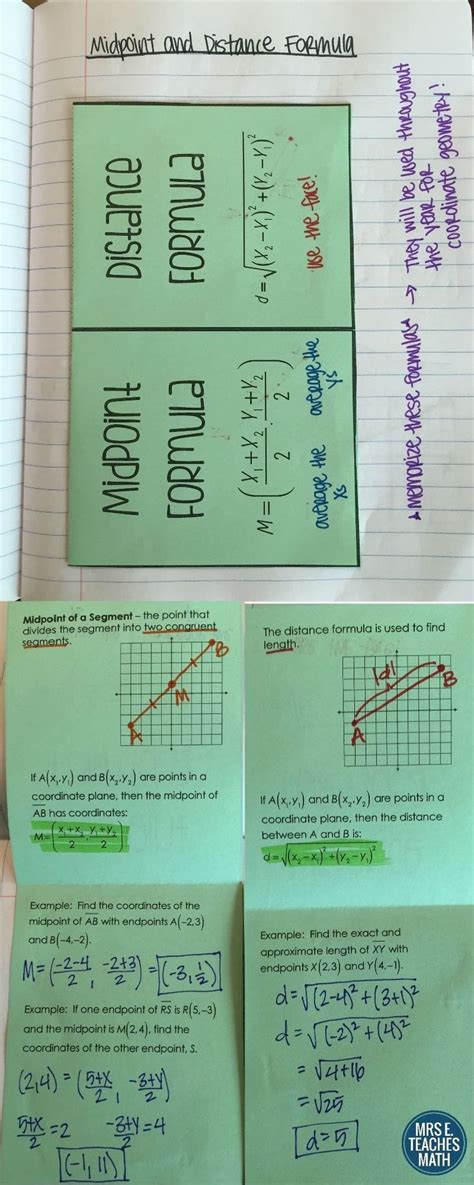 Midpoint and Distance Formula
Midpoint
Formula
M = ( x₁ + x₂ / 2 , y₁ + y₂ / 2 )
average the xs
average the ys
Distance
Formula
d = √(x₂ − x₁)² + (y₂ − y₁)²
use the face!
★ Memorize these formulas → They will be used throughout
the year for
coordinate geometry!
Midpoint of a Segment – the point that
divides the segment into two congruent
segments.
B
M
A
If A(x₁,y₁) and B(x₂,y₂) are points in a
coordinate plane, then the midpoint of
AB has coordinates:
M=( x₁+x₂ / 2 , y₁+y₂ / 2 )
Example: Find the coordinates of the
midpoint of AB with endpoints A(-2,3)
and B(-4,-2).
M = ( -2-4 / 2 , -2+3 / 2 ) = (-3, 1/2)
Example: If one endpoint of RS is R(5,-3)
and the midpoint is M(2,4), find the
coordinates of the other endpoint, S.
(2,4) = ( 5+x / 2 , -3+y / 2 )
5+x / 2 = 2 -3+y / 2 = 4
(-1, 11)
The distance formula is used to find
length.
|d|
B
A
If A(x₁,y₁) and B(x₂,y₂) are points in a
coordinate plane, then the distance
between A and B is:
d = √(x₂ − x₁)² + (y₂ − y₁)²
Example: Find the exact and
approximate length of XY with
endpoints X(2,3) and Y(4,-1).
d = √(2-4)² + (3+1)²
d = √(-2)² + (4)²
= √4+16
= √25
d = 5
MRS E.
TEACHES
MATH